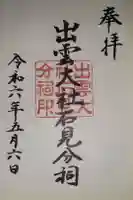 奉拝
出雲大社石見分祠
出雲大
分祠印
令和六年五月六日